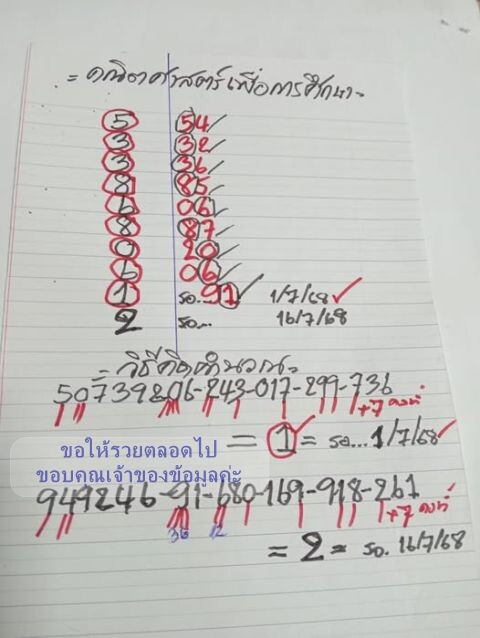 = คณิตศาสตร์เพื่อการศึกษา =
5 54 ✓
3 32 ✓
3 36 ✓
8 85 ✓
6 06 ✓
8 87 ✓
0 20 ✓
6 06 ✓
1 รอ... 91 ✓ 1/7/68 ✓
2 รอ... 16/7/68
= วิธีคิดคำนวณ =
50739206-243-017-299-736
+7 คงที่
= 1 = รอ... 1/7/68 ✓
ขอให้รวยตลอดไป
ขอบคุณเจ้าของข้อมูลค่ะ
949246-91-680-169-918-261
36 12 +7 คงที่
= 2 = รอ. 16/7/68